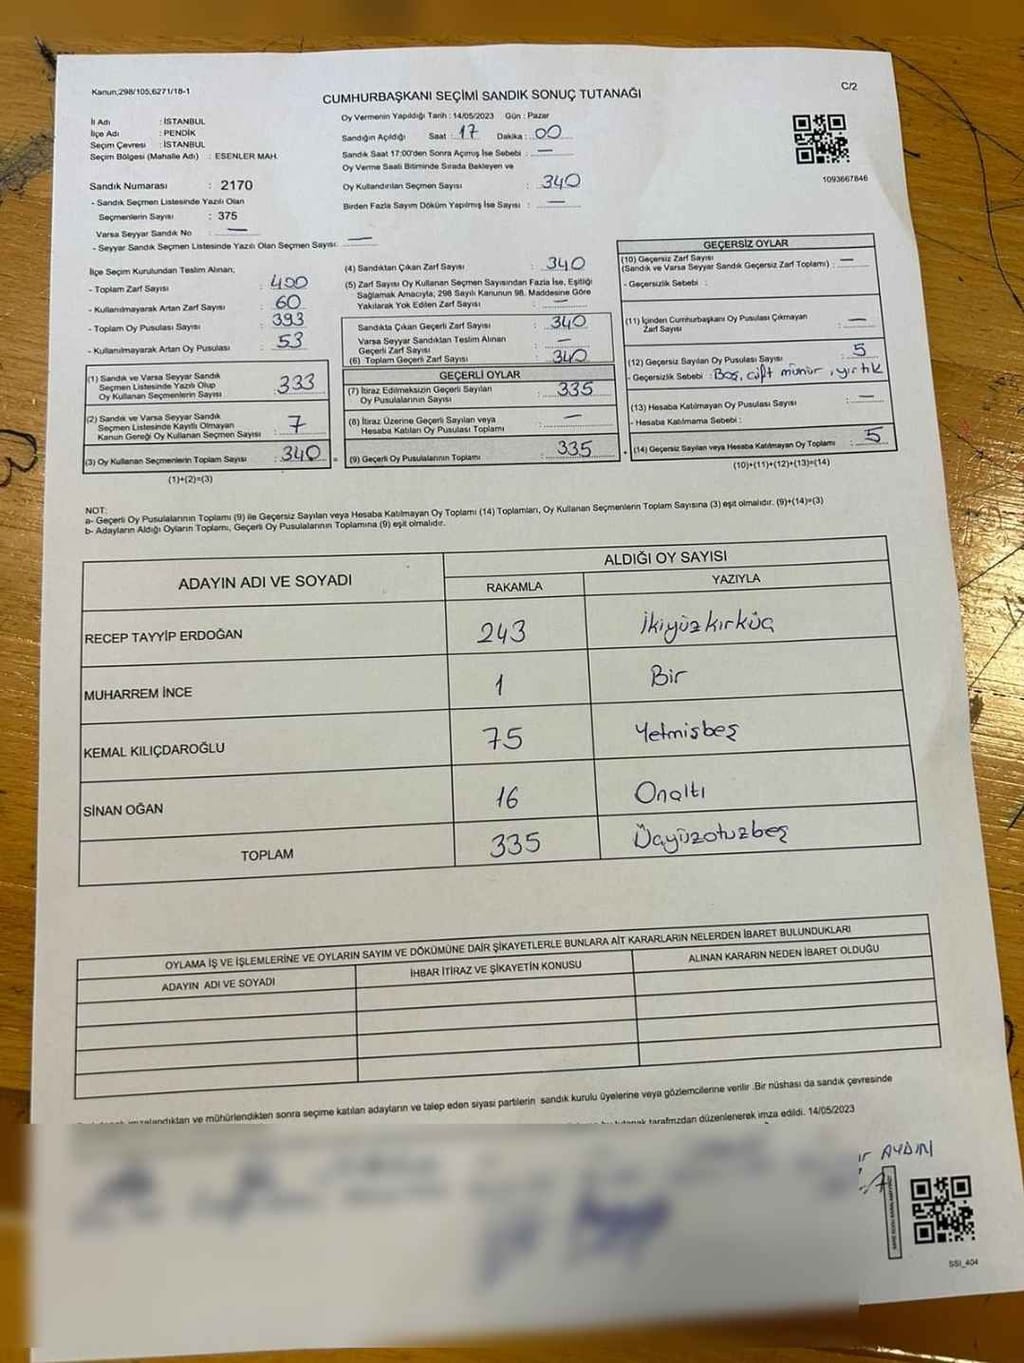 Kanun,298/105,6271/18-1
C/2
CUMHURBAŞKANI SEÇİMİ SANDIK SONUÇ TUTANAĞI
İl Adı : İSTANBUL
İlçe Adı : PENDİK
Seçim Çevresi : İSTANBUL
Seçim Bölgesi (Mahalle Adı) : ESENLER MAH.
Sandık Numarası : 2170
- Sandık Seçmen Listesinde Yazılı Olan
Seçmenlerin Sayısı : 375
Varsa Seyyar Sandık No : —
- Seyyar Sandık Seçmen Listesinde Yazılı Olan Seçmen Sayısı: —
Oy Vermenin Yapıldığı Tarih : 14/05/2023 Gün : Pazar
Sandığın Açıldığı Saat : 17 Dakika : 00
Sandık Saat 17:00'den Sonra Açımış İse Sebebi : —
Oy Verme Saati Bitiminde Sırada Bekleyen ve
Oy Kullandırılan Seçmen Sayısı : 340
Birden Fazla Sayım Döküm Yapılmış İse Sayısı : —
1093667846
İlçe Seçim Kurulundan Teslim Alınan;
- Toplam Zarf Sayısı : 400
- Kullanılmayarak Artan Zarf Sayısı : 60
- Toplam Oy Pusulası Sayısı : 393
- Kullanılmayarak Artan Oy Pusulası : 53
(1) Sandık ve Varsa Seyyar Sandık
Seçmen Listesinde Yazılı Olup
Oy Kullanan Seçmenlerin Sayısı : 333
(2) Sandık ve Varsa Seyyar Sandık
Seçmen Listesinde Kayıtlı Olmayan
Kanun Gereği Oy Kullanan Seçmen Sayısı : 7
(3) Oy Kullanan Seçmenlerin Toplam Sayısı : 340
(1)+(2)=(3)
(4) Sandıktan Çıkan Zarf Sayısı : 340
(5) Zarf Sayısı Oy Kullanan Seçmen Sayısından Fazla İse, Eşitliği
Sağlamak Amacıyla, 298 Sayılı Kanunun 98. Maddesine Göre
Yakılarak Yok Edilen Zarf Sayısı : —
Sandıkta Çıkan Geçerli Zarf Sayısı : 340
Varsa Seyyar Sandıktan Teslim Alınan
Geçerli Zarf Sayısı : —
(6) Toplam Geçerli Zarf Sayısı : 340
GEÇERLİ OYLAR
(7) İtiraz Edilmeksizin Geçerli Sayılan
Oy Pusulalarının Sayısı : 335
(8) İtiraz Üzerine Geçerli Sayılan veya
Hesaba Katılan Oy Pusulası Toplamı : —
(9) Geçerli Oy Pusulalarının Toplamı : 335
GEÇERSİZ OYLAR
(10) Geçersiz Zarf Sayısı
(Sandık ve Varsa Seyyar Sandık Geçersiz Zarf Toplamı) : —
- Geçersizlik Sebebi :
(11) İçinden Cumhurbaşkanı Oy Pusulası Çıkmayan
Zarf Sayısı : —
(12) Geçersiz Sayılan Oy Pusulası Sayısı : 5
- Geçersizlik Sebebi : Boş, çift mühür, yırtık
(13) Hesaba Katılmayan Oy Pusulası Sayısı : —
- Hesaba Katılmama Sebebi :
(14) Geçersiz Sayılan veya Hesaba Katılmayan Oy Toplamı : 5
(10)+(11)+(12)+(13)=(14)
NOT:
a- Geçerli Oy Pusulalarının Toplamı (9) ile Geçersiz Sayılan veya Hesaba Katılmayan Oy Toplamı (14) Toplamları, Oy Kullanan Seçmenlerin Toplam Sayısına (3) eşit olmalıdır. (9)+(14)=(3)
b- Adayların Aldığı Oyların Toplamı, Geçerli Oy Pusulalarının Toplamına (9) eşit olmalıdır.
ADAYIN ADI VE SOYADI
ALDIĞI OY SAYISI
RAKAMLA YAZIYLA
RECEP TAYYİP ERDOĞAN 243 İkiyüzkırküç
MUHARREM İNCE 1 Bir
KEMAL KILIÇDAROĞLU 75 Yetmişbeş
SİNAN OĞAN 16 Onaltı
TOPLAM 335 Üçyüzotuzbeş
OYLAMA İŞ VE İŞLEMLERİNE VE OYLARIN SAYIM VE DÖKÜMÜNE DAİR ŞİKAYETLERLE BUNLARA AİT KARARLARIN NELERDEN İBARET BULUNDUKLARI
ADAYIN ADI VE SOYADI İHBAR İTİRAZ VE ŞİKAYETİN KONUSU ALINAN KARARIN NEDEN İBARET OLDUĞU
imzalandıktan ve mühürlendikten sonra seçime katılan adayların ve talep eden siyasi partilerin sandık kurulu üyelerine veya gözlemcilerine verilir .Bir nüshası da sandık çevresinde
tutanak tarafımızdan düzenlenerek imza edildi. 14/05/2023
AYDIN
SSI_404